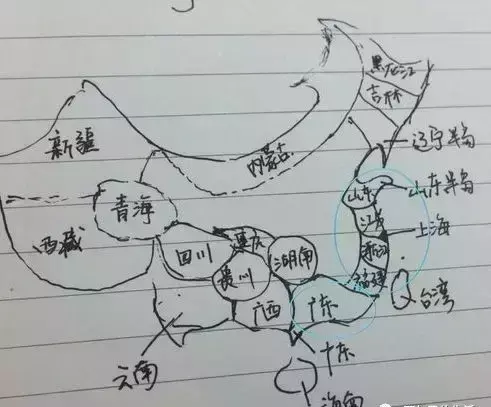 黑龙江
吉林
辽宁半岛
新疆
内蒙古
青海
山东
山东半岛
西藏
四川
重庆
湖南
江苏
上海
贵川
浙江
福建
广西
广东
台湾
云南
广东
海南